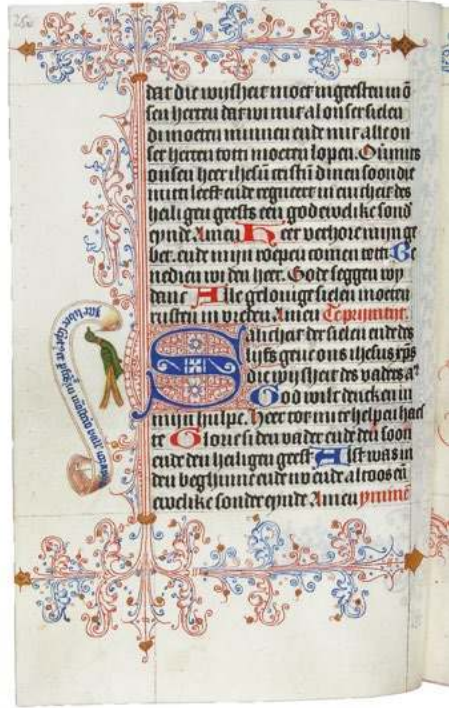 dat die wijsheit moet ingeesten in õ
sen herten dat wi mit al onser sielen
di moeten minnen ende mit alle on
ser herten totti moeten lopen. Oũmits
onsen heer ihesũ cristũ dinen soon die
mit leeft ende regneert in eincheit des
heiligen geests een god ewelike sond
eynde Amen Heer verhore mijn ge
bet. ende mijn roepen comen totti Be
nedien wi den heer. Gode seggen wy
danc Alle gelovige sielen moeten
rusten in vreden Amen Te prijmen.
Salicheit der sielen ende des
lijfs geve ons ihesus xp̃s
die wijsheit des vaders aẽ
God wilt dencken in
mijn hulpe. Heer tot mi te helpen haes
te Glorie si den vader ende den soon
ende den heiligen geest Alst was in
den beghinne ende nv ende altoos eñ
ewelike sonder eynde Amen ymnẽ